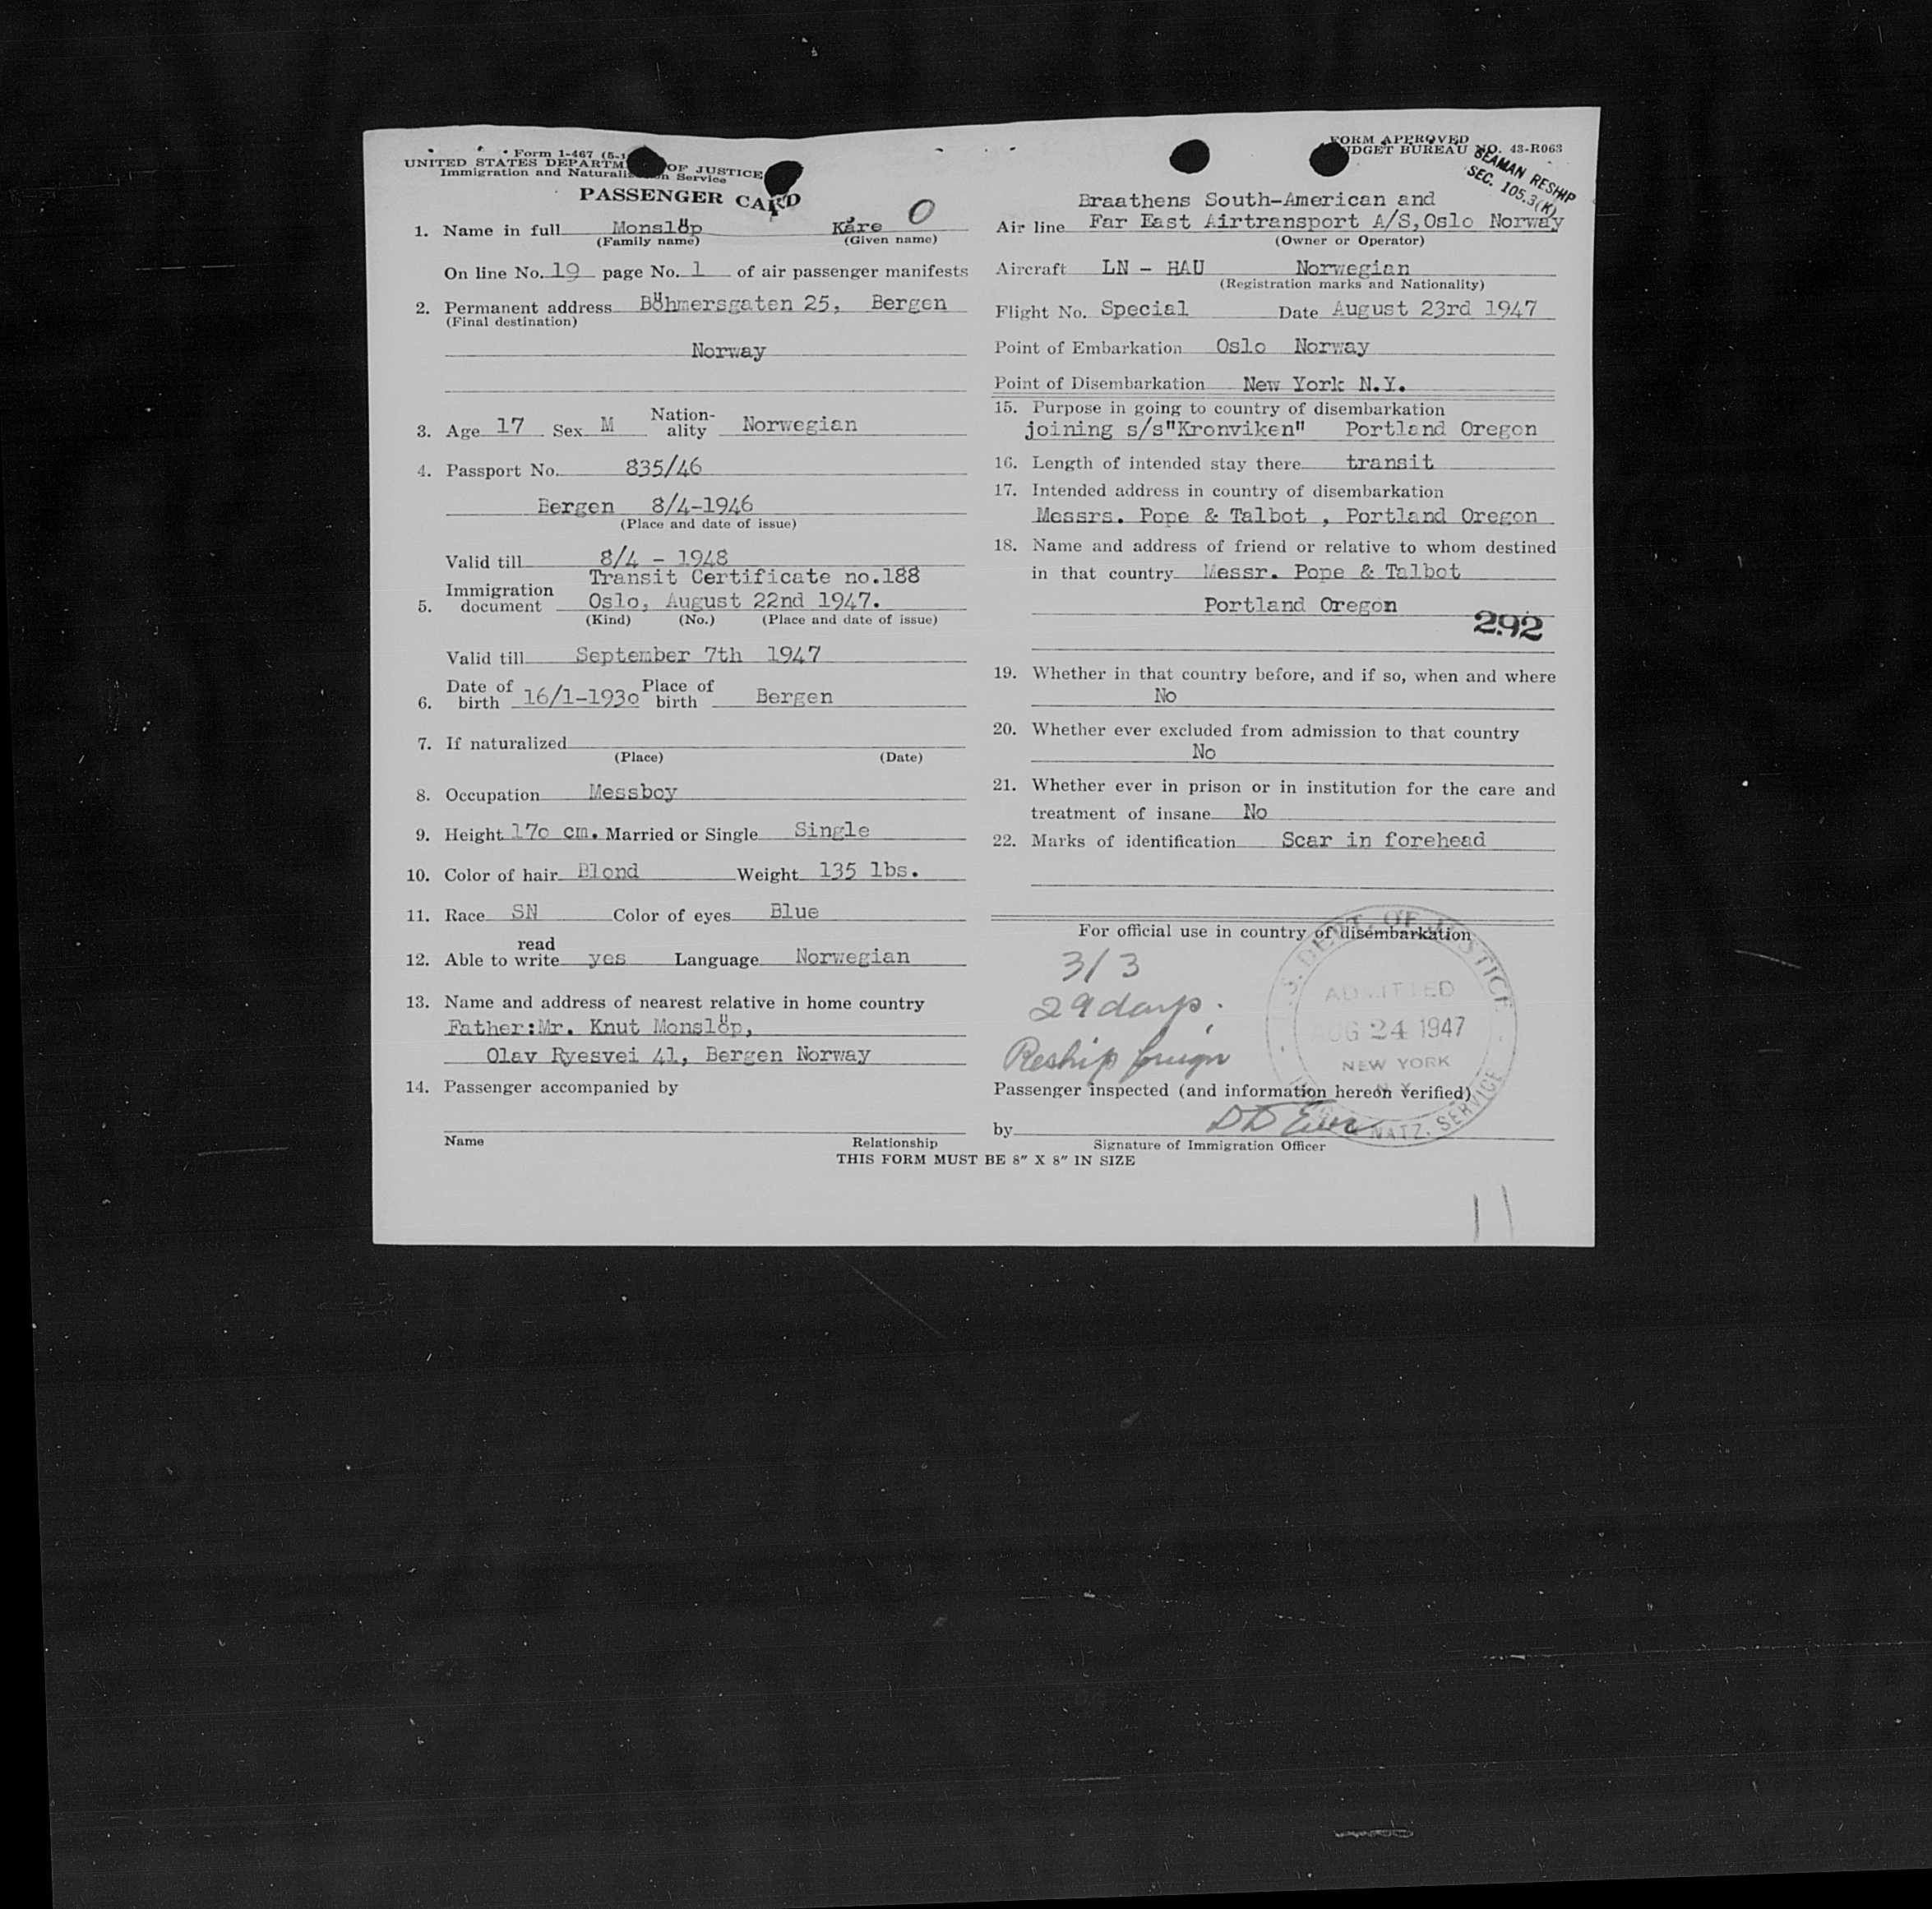 Form 1-467 (5-1
UNITED STATES DEPARTM OF JUSTICE
Immigration and Naturaliz n Service
PASSENGER CARD
1. Name in full Monslöp Kåre O
(Family name) (Given name)
On line No. 19 page No. 1 of air passenger manifests
2. Permanent address Böhmersgaten 25, Bergen
(Final destination)
Norway
3. Age 17 Sex M Nation-ality Norwegian
4. Passport No. 835/46
Bergen 8/4-1946
(Place and date of issue)
Valid till 8/4 - 1948
Transit Certificate no.188
5. Immigration document Oslo, August 22nd 1947.
(Kind) (No.) (Place and date of issue)
Valid till September 7th 1947
6. Date of birth 16/1-1930 Place of birth Bergen
7. If naturalized
(Place) (Date)
8. Occupation Messboy
9. Height 170 cm. Married or Single Single
10. Color of hair Blond Weight 135 lbs.
11. Race SN Color of eyes Blue
12. Able to read write yes Language Norwegian
13. Name and address of nearest relative in home country
Father:Mr. Knut Monslöp,
Olav Ryesvei 41, Bergen Norway
14. Passenger accompanied by
Name Relationship
FORM APPROVED
DGET BUREAU NO. 43-R063
SEAMAN RESHIP
SEC. 105.3(K)
Braathens South-American and
Air line Far East Airtransport A/S,Oslo Norway
(Owner or Operator)
Aircraft LN - HAU Norwegian
(Registration marks and Nationality)
Flight No. Special Date August 23rd 1947
Point of Embarkation Oslo Norway
Point of Disembarkation New York N.Y.
15. Purpose in going to country of disembarkation
joining s/s"Kronviken" Portland Oregon
16. Length of intended stay there transit
17. Intended address in country of disembarkation
Messrs. Pope & Talbot , Portland Oregon
18. Name and address of friend or relative to whom destined
in that country Messr. Pope & Talbot
Portland Oregon
292
19. Whether in that country before, and if so, when and where
No
20. Whether ever excluded from admission to that country
No
21. Whether ever in prison or in institution for the care and
treatment of insane No
22. Marks of identification Scar in forehead
For official use in country of disembarkation
3/3
29 days.
Reship foreign
U.S. DEPT. OF JUSTICE
ADMITTED
AUG 24 1947
NEW YORK
N.Y.
NATZ. SERVICE
Passenger inspected (and information hereon verified)
by
Signature of Immigration Officer
THIS FORM MUST BE 8" X 8" IN SIZE